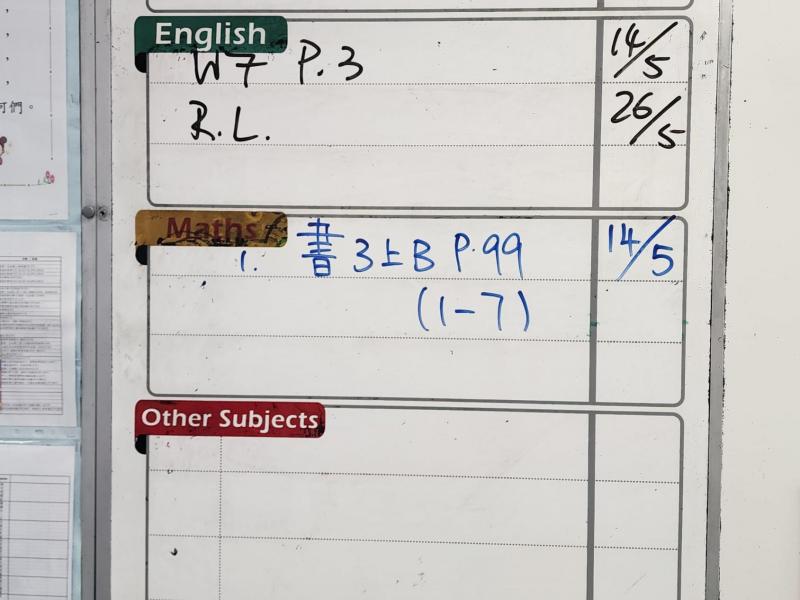 English
W7 P.3 14/5
R.L. 26/5
Maths
1. 書3上B P.99 14/5
(1-7)
Other Subjects
們。